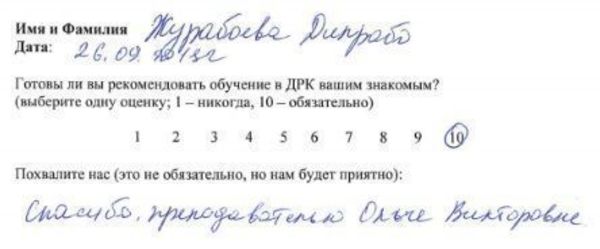 Имя и Фамилия Журабоева Дилрабо
Дата: 26.09.2018г
Готовы ли вы рекомендовать обучение в ДРК вашим знакомым?
(выберите одну оценку; 1 – никогда, 10 – обязательно)
1 2 3 4 5 6 7 8 9 10
Похвалите нас (это не обязательно, но нам будет приятно):
Спасибо, преподавателю Ольге Викторовне